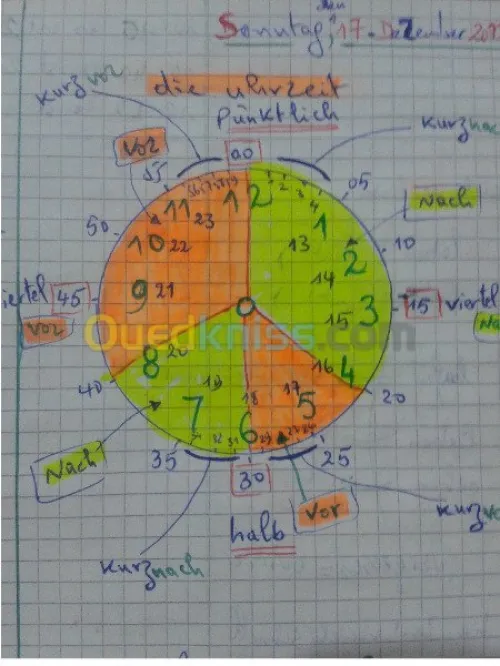 Sonntag, den 17. Dezember
die uhrzeit
Pünktlich
kurz vor
kurz nach
vor
00
55
05
Nach
11 12 1
23 13
50 10 22 2 10
14
viertel 45 9 21 3 15 viertel
vor
15
Ouedkniss.com
40 8 20 16 4 20
19 17
7 18 5
6
Nach
35 25
30
vor
halb
kurz vor
kurz nach